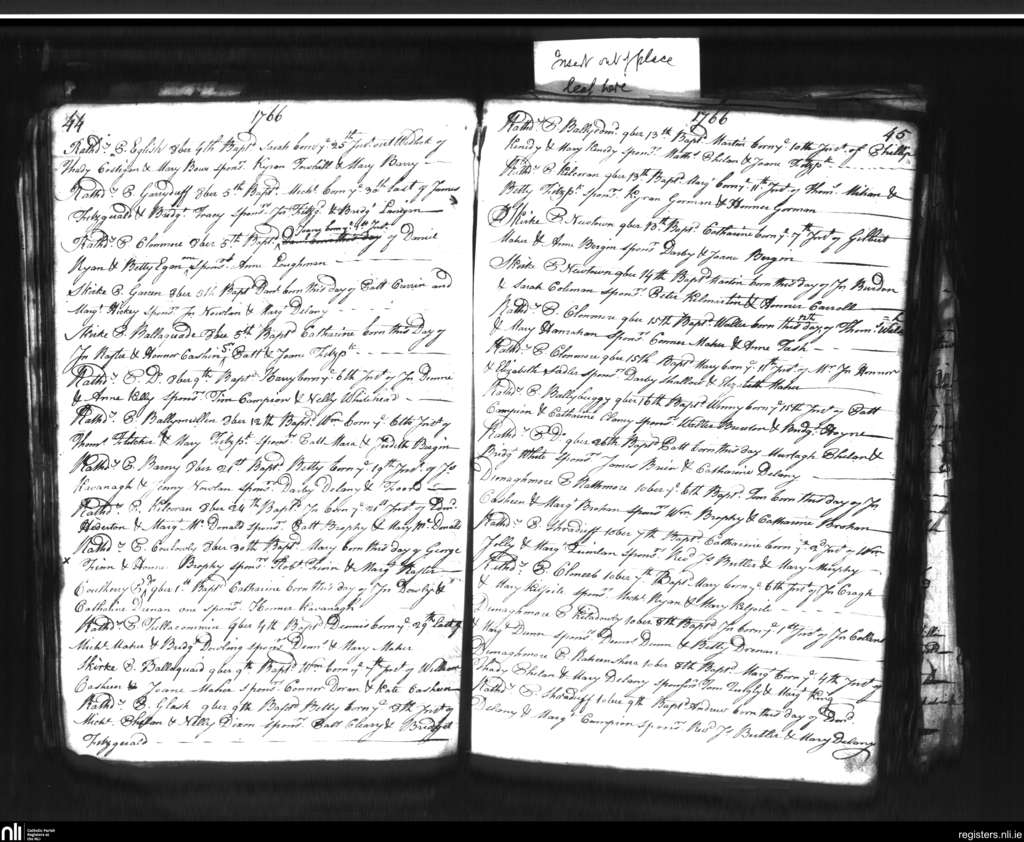 Insert out of place
leaf here
44
1766
Rathd.y P. Eglish 8ber 4th Bapt. Sarah born y.e 25th Inst. out Wedlock of
Thady Costigan & Mary Bowe spons.rs Kyran Tuohill & Mary Barry
Rathd.y P. Garryduff 8ber 5th Bapt. Mich.l born y.e 30th last of James
Fitzgerald & Bridg.t Tracy spons.rs Jn Fitzg.d & Bridg.t Landgon
Rathd.y P. Clonmore 8ber 5th Bapt. born this day of Daniel
Ryan & Betty Egan one Spons.r Anne Loughman
Skirke P. Garran 8ber 5th Bapt. Dan.l born this day of Patt Currin and
Marg.t Hickey Spons.rs Jn Nowlan & Marg.t Delany
Skirke P. Ballaquade 8ber 5th Bapt. Catharine born this Day of
Jn Rafter & Honnor Cashin Sp. Patt & Joane Fitzp.k
Rathd.y P. D.o 8ber 9th Bapt. Harry born y.e 6th Inst. of Jn Dunne
& Anne Kelly spons.rs Tim Campion & Nelly Whitehead
Rathd.y P. Ballymullen 8ber 12th Bapt. Wm born y.e 6th Inst. of
Thom.s Fletcher & Mary Fitzp.k spons.rs Patt Mara & Judith Bergin
Rathd.y P. Barny 8ber 21st Bapt. Betty born y.e 19th Inst. of Jn
Kavanagh & Jenny Nowlan spons.rs Darby Delany &
Rathd.y P. Kilcoran 8ber 24th Bapt. Jn born y.e 21st Inst. of Edm.d
& Marg.t Mc Donald spons.rs Patt Brophy & Mary Mc Donald
Rathd.y P. 8ber 30th Bapt. Mary born this day of George
& Honnor Brophy spons.rs Rob.t & Marg.t Rafter
P. 9ber 1st Bapt. Catharine born this day of Jn Dowly &
Catharine one spons.r Honnor Kavanagh
Rathd.y P. Tullacommin 9ber 4th Bapt. Dennis born y.e 29th last of
Mich.l Maher & Bridg.t Dowling spons.rs Denn.s & Mary Maher
Skirke P. Ballaquad 9ber 9th Bapt. Wm born y.e 7th Inst. of William
Casheen & Joane Maher spons.rs Connor Doran & Kate Casheen
Rathd.y P. Glash 9ber 9th Bapt. Betty born y.e 8th Inst. of
Mich.l Phelan & Nelly Dixon spons.rs Patt Cleary & Bridget
Fitzguald
1766
45
Rathd.y P. Ballyedm.d 9ber 13th Bapt. Martin born y.e 10th Inst. of Phillip
Kenedy & Mary Kenedy spons.rs Math.w Phelan & Joane Fitzp.k
Rathd.y P. Kilcoran 9ber 13th Bapt. Marg.t born y.e 11th Inst. of Thom.s Mihan &
Betty Fitzp.k spons.rs Kyran Gorman & Honnor Gorman
Skirke P. Newtown 9ber 13th Bapt. Catharine born y.e 7th Inst. of Gilbert
Maher & Anne Bergin spons.rs Darby & Joane Bergin
Skirke P. Newtown 9ber 14th Bapt. Martin born this day of Jn Burdon
& Sarah Coleman spons.rs Peter Kilmartin & Honnor Carroll
Rathd.y P. Clonmore 9ber 15th Bapt. Walter born this 12th day of Thom.s Walsh
& Mary Hanrahan spons.rs Connor Maher & Anne Tash
Rathd.y P. Clonmore 9ber 15th Bapt. Mary born y.e 11th Inst. of Mr Jn Honnor
& Elizabeth Sadler spons.rs Darby & Elizabeth Maher
Rathd.y P. Ballybuggy 9ber 16th Bapt. Winny born y.e 15th Inst. of Patt
Campion & Catharine Clancy spons.rs Walter Bowdon & Bridg.t Hayne
Rathd.y P. D.o 9ber 26th Bapt. Patt born this day Murtagh Phelan &
Bridg.t White spons.rs James Brien & Catharine Delany
Donaghmore P. Rathmore 10ber y.e 6th Bapt. Tom born this day of Jn
Casheen & Marg.t Brohan spons.rs Wm Brophy & Catharine Brohan
Rathd.y P. Shraduff 10ber 7th Bapt. Catharine born y.e 2d Inst. of Wm
Jolly & Marg.t Quinlan spons.rs Rev.d Jn Butler & Mary Murphy
Rathd.y P. Cloneeb 10ber y.e 7th Bapt. Mary born y.e 6th Inst. of Jn Cragh
& Mary Kilfoile spons.rs Mich.l Ryan & Mary Kilfoile
Donaghmore P. Kiladooly 10ber 8th Bapt. Jn born y.e 1st Inst. of Jn Collens
& Marg.t Dunn spons.rs Dan.l Dunn & Betty Drenan
Donaghmore P. Raheenshera 10ber 8th Bapt. Marg.t born y.e 4th Inst. of
Thady Phelan & Mary Delany sponsors Tom & Marg.t King
Rathd.y P. Shraduff 10ber 9th Bapt. Andrew born this day of Dan.l
Delany & Marg.t Campion spons.rs Rev.d Jn Butler & Mary Delany
nli
Catholic Parish
Registers at
the NLI
registers.nli.ie